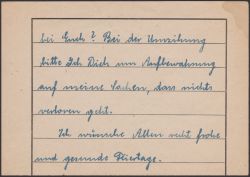 bei Euch? Bei der Umziehung
bitte Ich Dich um Aufbewahrung
auf meine Sachen, dass nichts
verloren geht.
Ich wünsche Allen recht frohe
und gesunde Feiertage.